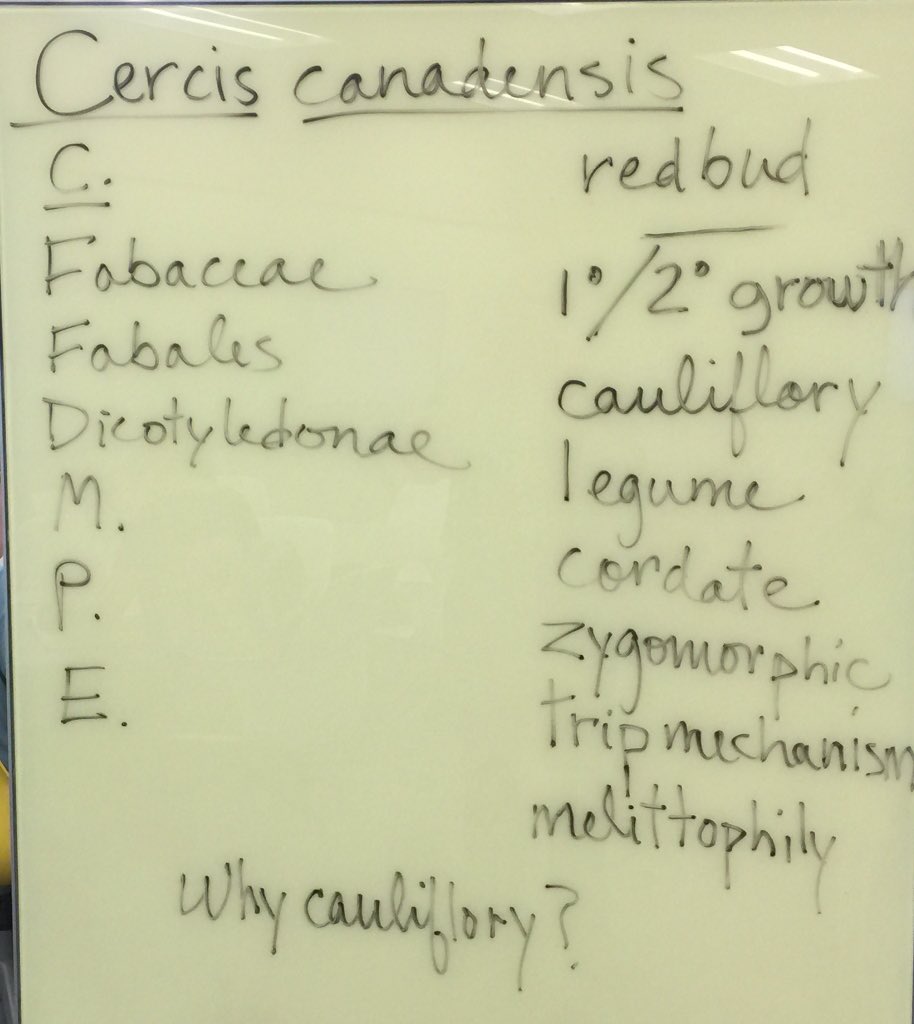 Cercis canadensis
C.
Fabaceae
Fabales
Dicotyledonae
M.
P.
E.
redbud
1°/2° growth
cauliflory
legume
cordate
zygomorphic
trip mechanism
melittophily
Why cauliflory?